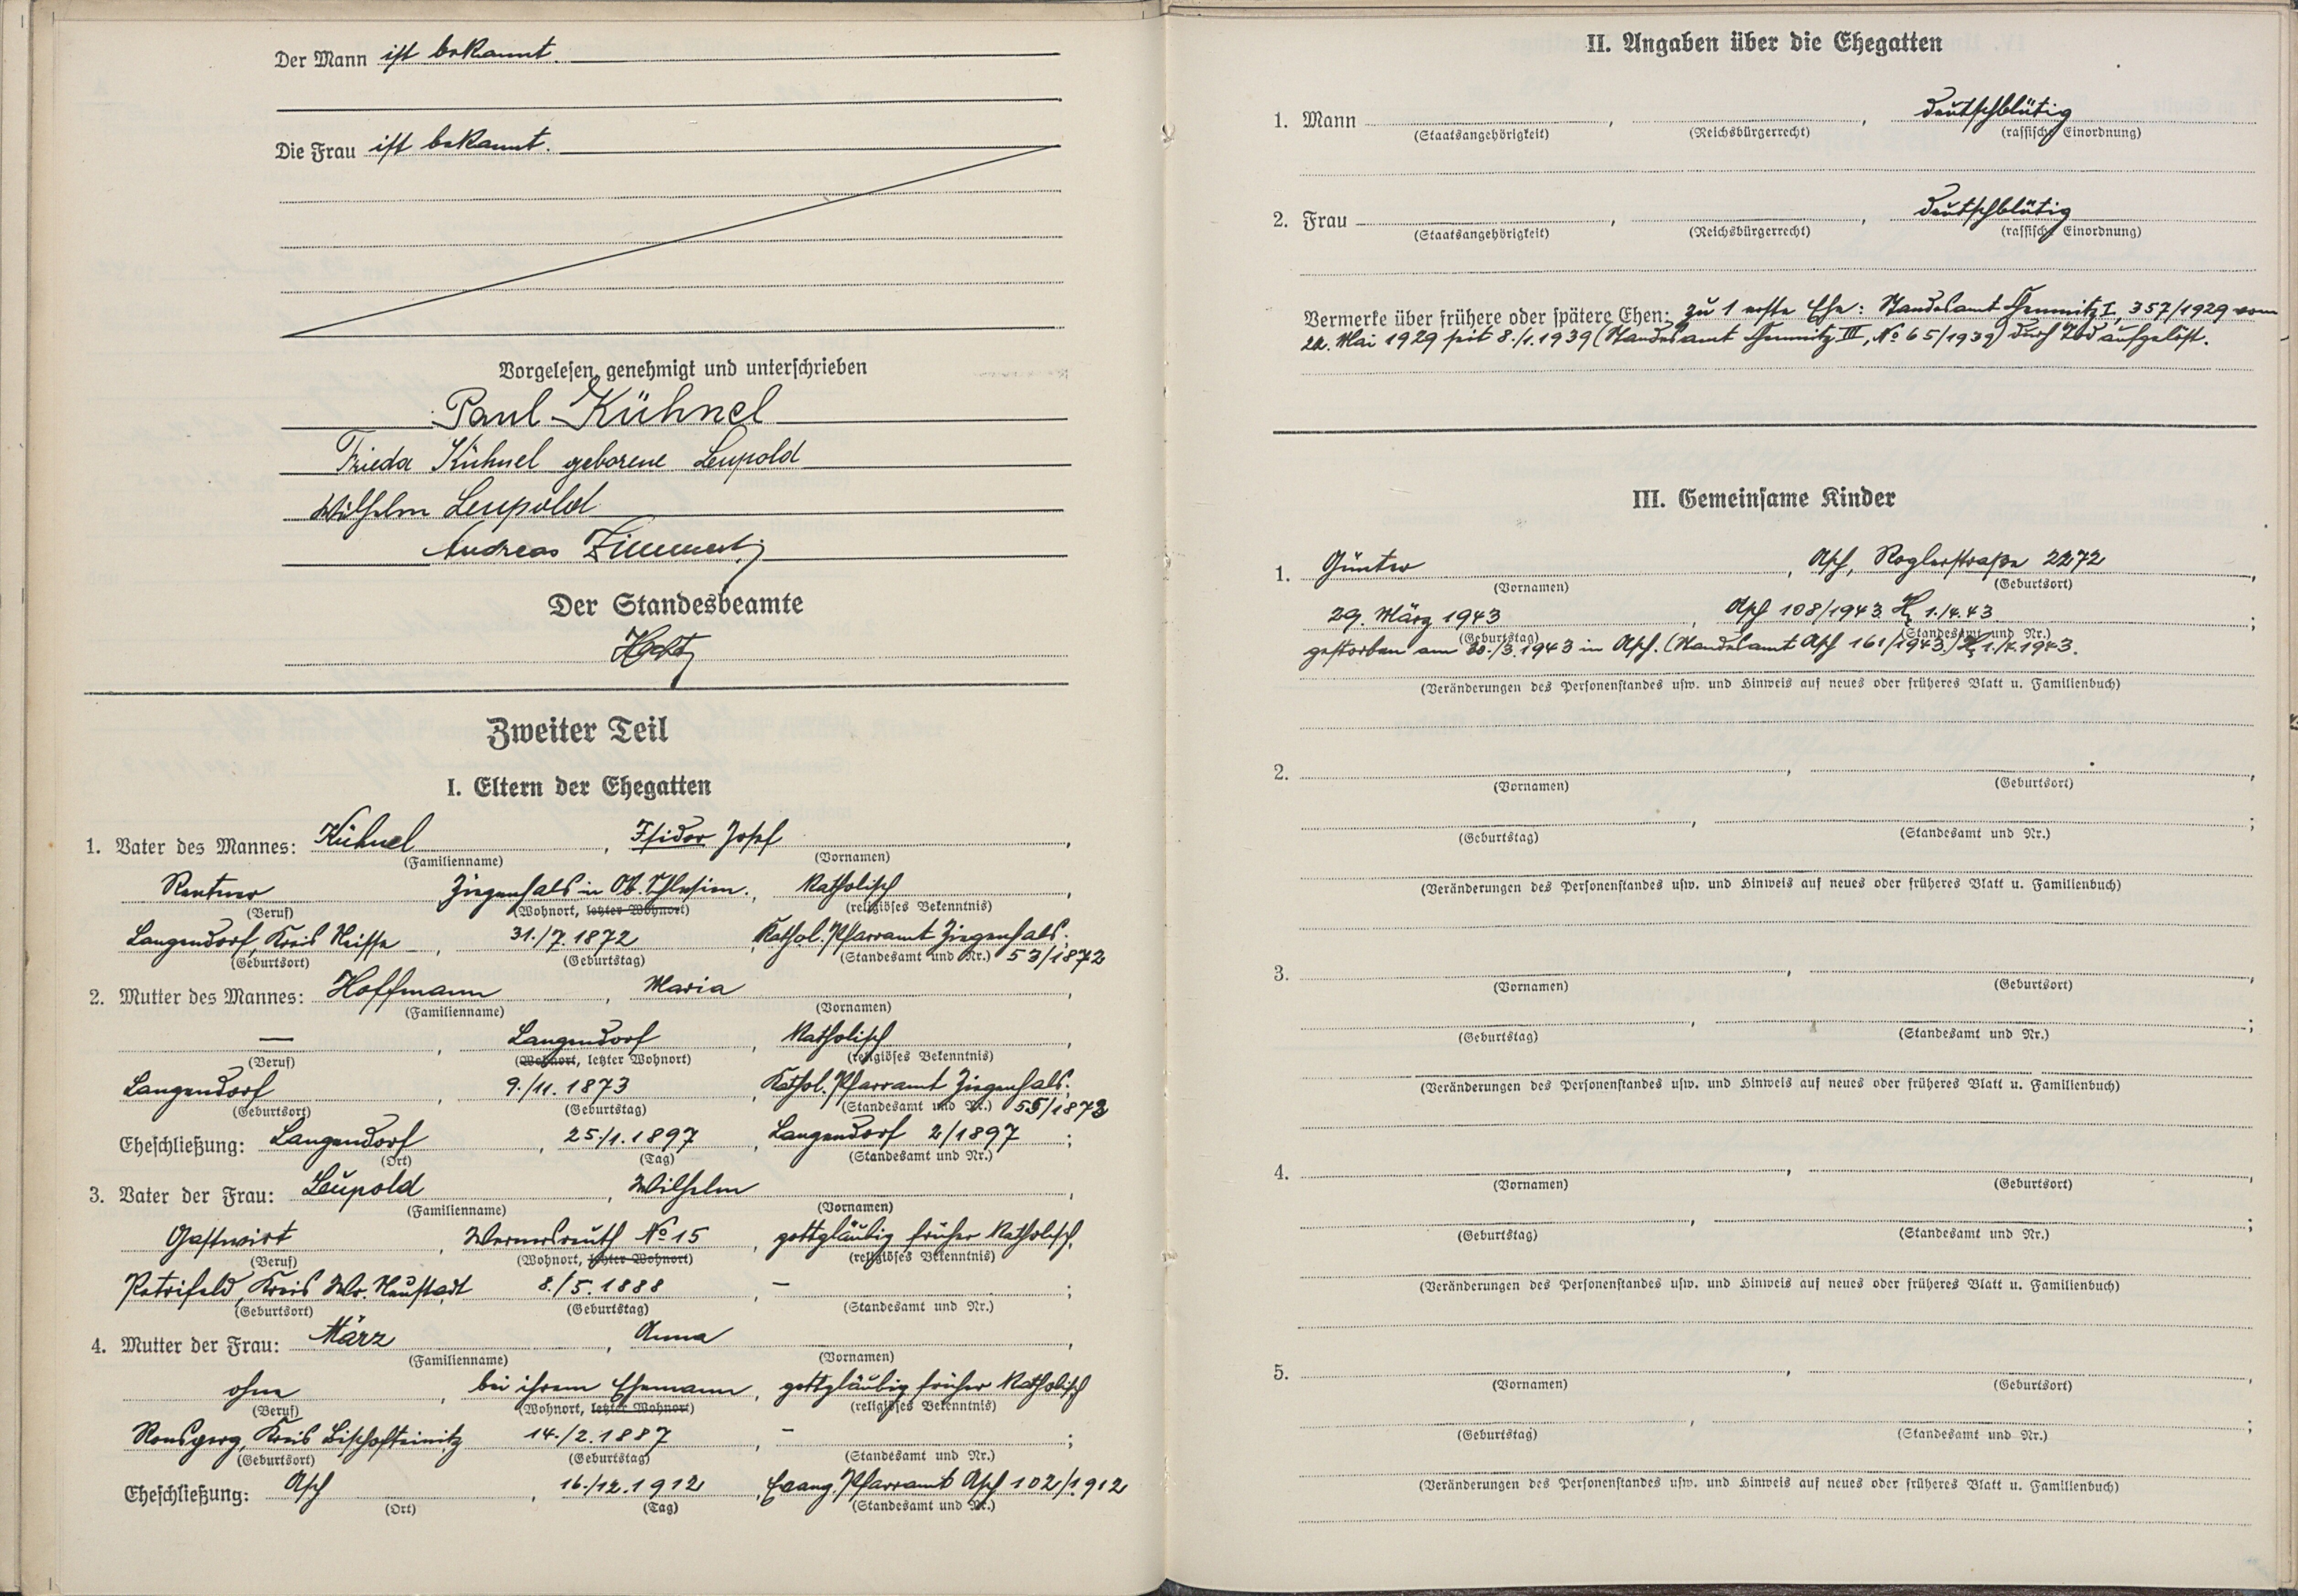 Der Mann ist bekannt.
Die Frau ist bekannt.
Vorgelesen, genehmigt und unterschrieben
Paul Kühnel
Frieda Kühnel geborene Leupold
Wilhelm Leupold
Andreas
Der Standesbeamte
Zweiter Teil
I. Eltern der Ehegatten
1. Vater des Mannes: Kühnel, Isidor Josef,
(Familienname) (Vornamen)
Rentner Ziegenhals in Ob. Schlesien., katholisch,
(Beruf) (Wohnort, letzter Wohnort) (religiöses Bekenntnis)
Langendorf, Kreis Neisse, 31./7.1872, Kathol. Pfarramt Ziegenhals;
(Geburtsort) (Geburtstag) (Standesamt und Nr.) 53/1872
2. Mutter des Mannes: Hoffmann, Maria,
(Familienname) (Vornamen)
—, Langendorf, katholisch,
(Beruf) (Wohnort, letzter Wohnort) (religiöses Bekenntnis)
Langendorf, 9./11.1873, Kathol. Pfarramt Ziegenhals;
(Geburtsort) (Geburtstag) (Standesamt und Nr.) 55/1873
Eheschließung: Langendorf, 25./1.1897, Langendorf 2/1897;
(Ort) (Tag) (Standesamt und Nr.)
3. Vater der Frau: Leupold, Wilhelm,
(Familienname) (Vornamen)
Gastwirt, Wernersreuth No 15, gottgläubig früher katholisch,
(Beruf) (Wohnort, letzter Wohnort) (religiöses Bekenntnis)
Petrifeld, Kreis Wr. Neustadt 8./5.1888, –;
(Geburtsort) (Geburtstag) (Standesamt und Nr.)
4. Mutter der Frau: März, Anna,
(Familienname) (Vornamen)
ohne, bei ihrem Ehemann, gottgläubig früher katholisch
(Beruf) (Wohnort, letzter Wohnort) (religiöses Bekenntnis)
Ronsperg, Kreis Bischofteinitz 14./2.1887, –;
(Geburtsort) (Geburtstag) (Standesamt und Nr.)
Eheschließung: Asch, 16./12.1912, Evang. Pfarramt Asch 102/1912
(Ort) (Tag) (Standesamt und Nr.)
II. Angaben über die Ehegatten
1. Mann, , deutschblütig
(Staatsangehörigkeit) (Reichsbürgerrecht) (rassische Einordnung)
2. Frau, , deutschblütig
(Staatsangehörigkeit) (Reichsbürgerrecht) (rassische Einordnung)
Vermerke über frühere oder spätere Ehen: zu 1 erste Ehe: Standesamt Chemnitz I, 357/1929 vom
22. Mai 1929 seit 8./1.1939 (Standesamt Chemnitz III, No 65/1939) durch Tod aufgelöst.
III. Gemeinsame Kinder
1. Günter, Asch, Roglerstraße 2272,
(Vornamen) (Geburtsort)
29. März 1943, Asch 108/1943 1./4.43;
(Geburtstag) (Standesamt und Nr.)
gestorben am 30./3.1943 in Asch. (Standesamt Asch 161/1943) 1./4.1943.
(Veränderungen des Personenstandes usw. und Hinweis auf neues oder früheres Blatt u. Familienbuch)
2. , ,
(Vornamen) (Geburtsort)
, ;
(Geburtstag) (Standesamt und Nr.)
(Veränderungen des Personenstandes usw. und Hinweis auf neues oder früheres Blatt u. Familienbuch)
3. , ,
(Vornamen) (Geburtsort)
, ;
(Geburtstag) (Standesamt und Nr.)
(Veränderungen des Personenstandes usw. und Hinweis auf neues oder früheres Blatt u. Familienbuch)
4. , ,
(Vornamen) (Geburtsort)
, ;
(Geburtstag) (Standesamt und Nr.)
(Veränderungen des Personenstandes usw. und Hinweis auf neues oder früheres Blatt u. Familienbuch)
5. , ,
(Vornamen) (Geburtsort)
, ;
(Geburtstag) (Standesamt und Nr.)
(Veränderungen des Personenstandes usw. und Hinweis auf neues oder früheres Blatt u. Familienbuch)